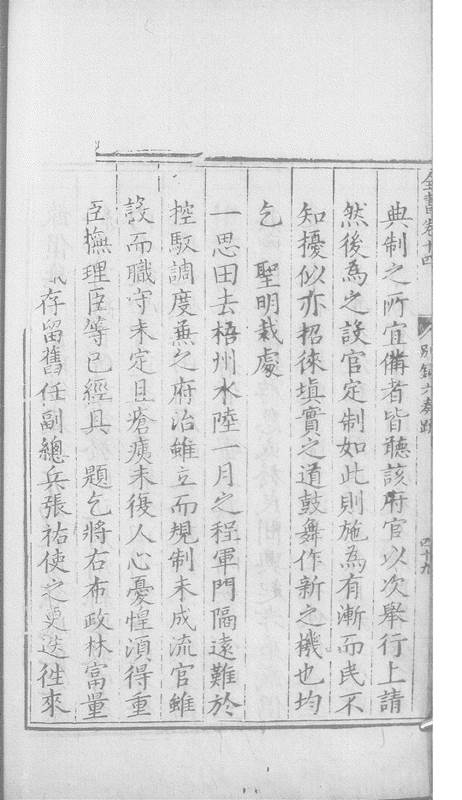 全書卷十四
別錄六奏疏
四十九
典制之所宜備者皆聽該府官以次舉行上請
然後為之設官定制如此則施為有漸而民不
知擾似亦招徠填實之道鼓舞作新之機也均
乞　聖明裁處
一思田去梧州水陸一月之程軍門隔遠難於
控馭調度兼之府治雖立而規制未成流官雖
設而職守未定且瘡痍未復人心憂惶須得重
臣撫理臣等已經具　題乞將右布政林富量
存留舊任副總兵張祐使之更迭徃來